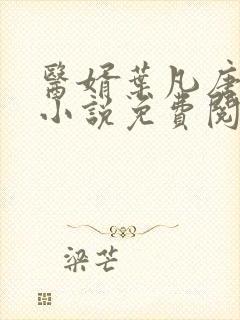 醫婿葉凡唐
小說免費閱
梁芒